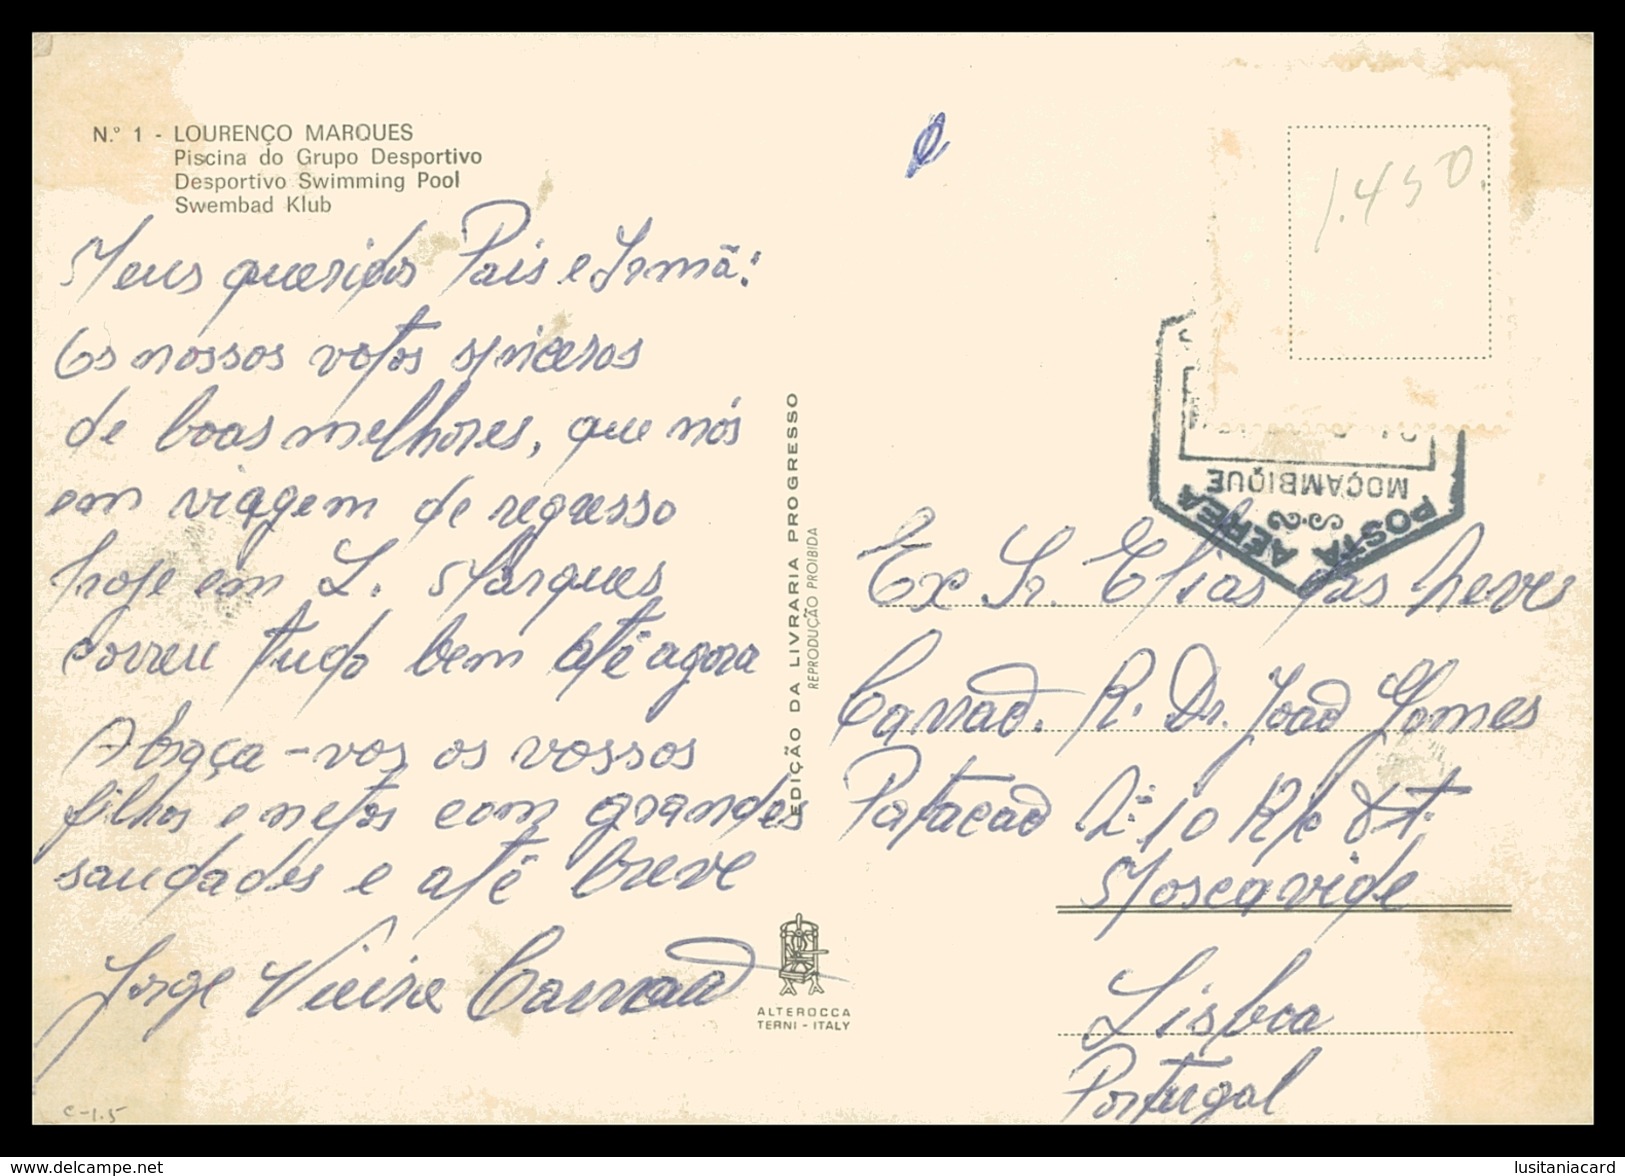 N.º 1 - LOURENÇO MARQUES
Piscina do Grupo Desportivo
Desportivo Swimming Pool
Swembad Klub
Meus queridos Pais e Irmã:
Os nossos votos sinceros
de boas melhores, que nós
em viagem de regresso
hoje em L. Marques
correu tudo bem até agora
Abraça-vos os vossos
filhos e netos com grandes
saudades e até breve
Jorge Vieira Carrasco
EDIÇÃO DA LIVRARIA PROGRESSO
REPRODUÇÃO PROIBIDA
ALTEROCCA
TERNI - ITALY
1.450.
MOÇAMBIQUE
POSTA AEREA
Ex Sr. Elias das Neves
R. Dr. João Gomes
Patacão Nº 10 R/c Dt.
Moscavide
Lisboa
Portugal
C-1.5
delcampe.net
lusitaniacard